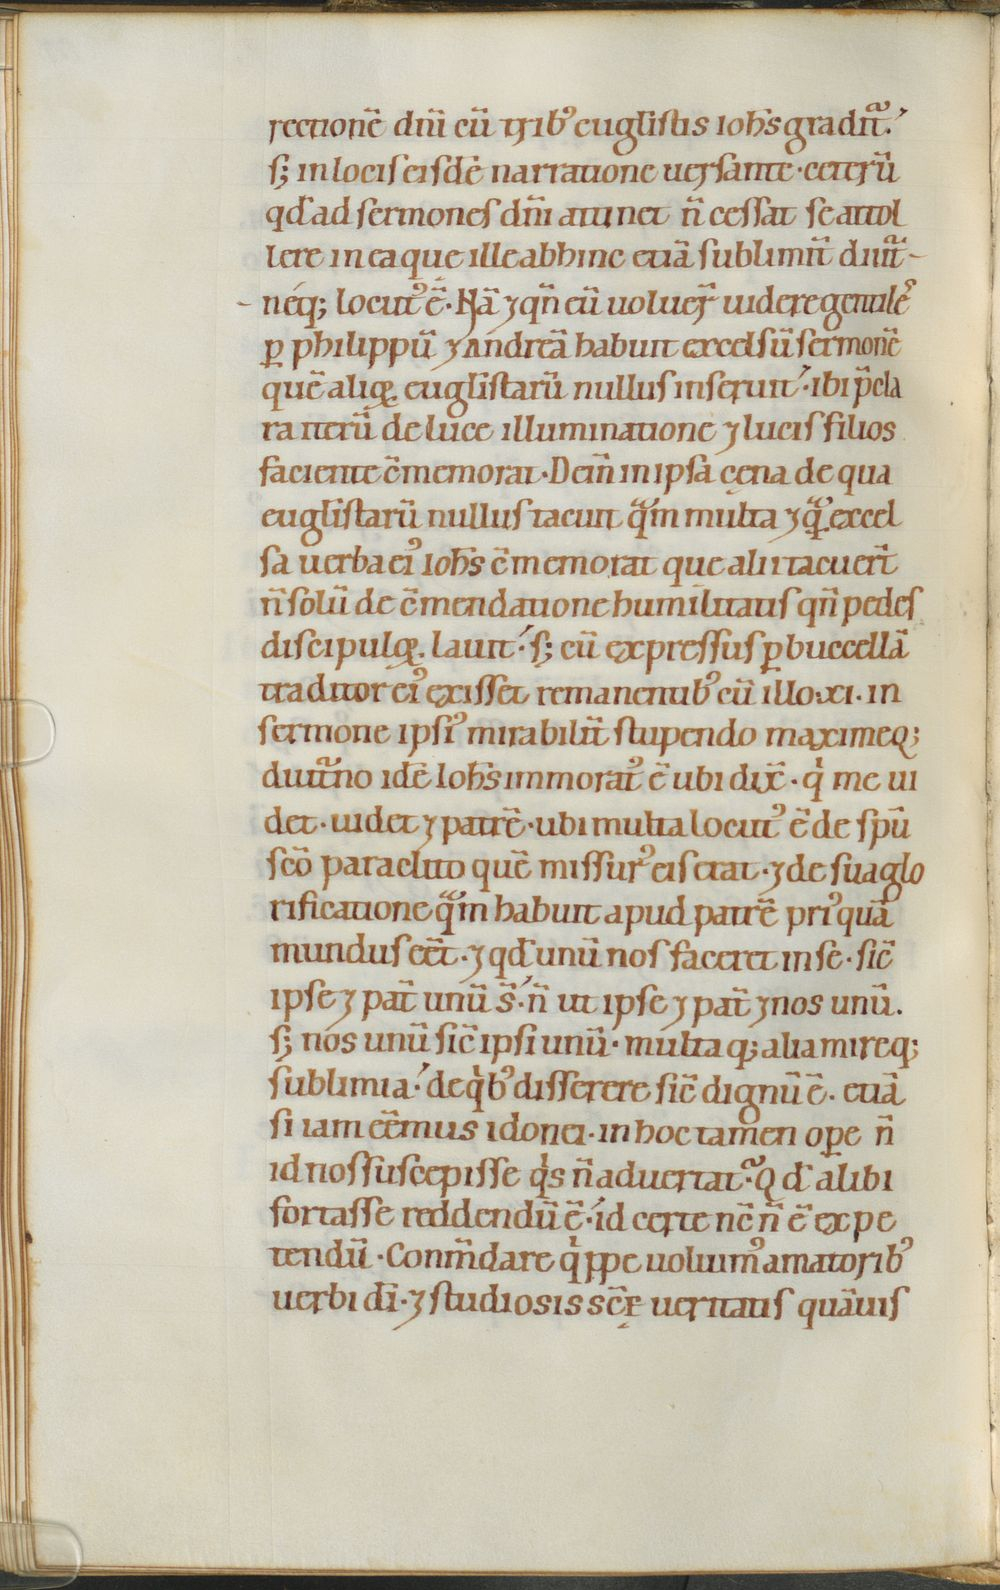 rectionē dn̄i cū trib᷒ euḡlistis Ioh̄s gradit᷑.
s; in locis eisdē narratione uersante · ceterū
qđ ad sermones dn̄i attinet n̄ cessat se attol
lere in ea que ille abhinc etiā sublimit̄ diuit᷑
néq; locut᷒ ē. Nā ⁊ qn̄ eū uoluer̄ uidere gentile᷒
ꝑ philippū ⁊ Andreā habuit excelsū sermonē
quē alioꝝ euḡlistarū nullus inseruit · ibi p̄cla
ra iterū de luce illuminatione ⁊ lucis filios
faciente c̄memorat · Dein̄ in ipsa cęna de qua
euḡlistarū nullus tacuit qᷓm multa ⁊ qᷓ excel
sa uerba ei᷒ Ioh̄s c̄memorat que alii tacuer̄t
n̄ solū de c̄mendatione humilitatis qn̄ pedes
discipuloꝝ lauit · s; cū expressus ꝑ buccellā
traditor ei᷒ exisset remanentib᷒ cū illo · xi · in
sermone ipsi᷒ mirabilit̄ stupendo maximeq;
diuit᷑no idē Ioh̄s immorat᷒ ē ubi dix̄ · qͥ me ui
det · uidet ⁊ patrē · ubi multa locut᷒ ē de sp̄u
sc̄o paraclito quē missur᷒ eis erat · ⁊ de sua glo
rificatione qᷓm habuit apud patrē pri᷒quā
mundus eēt · ⁊ qđ unū nos faceret in se · sic̄
ipse ⁊ pat̄ unū s̄ · n̄ ut ipse ⁊ pat̄ ⁊ nos unū.
s; nos unū sic̄ ipsi unū · multa q; alia mireq;
sublimia · de qͥb᷒ disserere sic̄ dignū ē · etiā
si iam eēmus idonei · in hoc tamen oꝑe n̄
id nos suscepisse qͥs n̄ aduertat · Qđ alibi
fortasse reddendū ē · id certe nc̄ n̄ ē expe
tendū · Conm̄dare qͥppe uoluim᷒ amatorib᷒
uerbi dī · ⁊ studiosis sc̄ę ueritatis quāuis